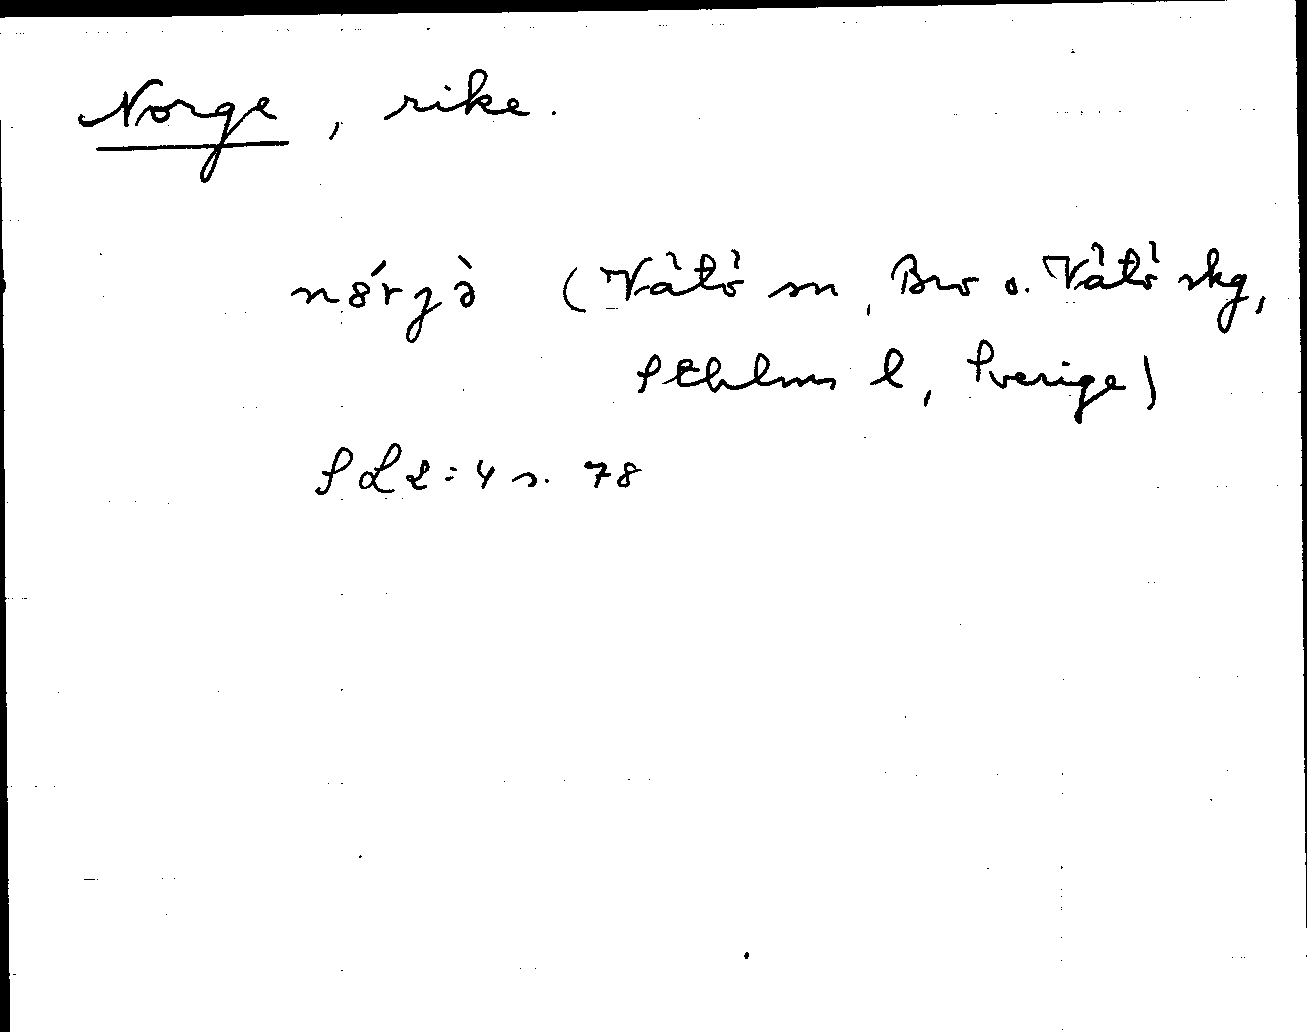 Norge, rike.
(Vätö sn, Bro o. Vätö skg,
Sthlms l, Sverige)
SL 2:4 s. 78